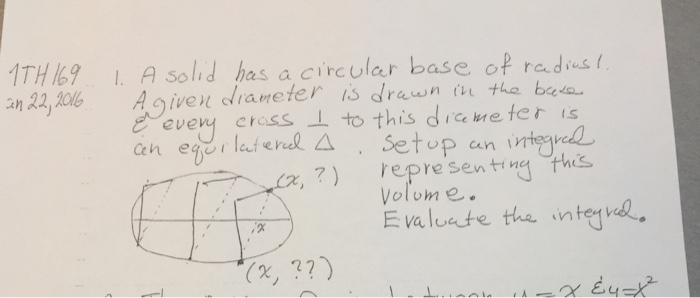 1TH 169 1. A solid has a circular base of radius 1.
an 22, 2016 A given diameter is drawn in the base
& every cross ⊥ to this diameter is
an equilateral Δ. Set up an integral
representing this
(x, ?)
volume.
Evaluate the integral.
x
(x, ??)
y = x & y = x²